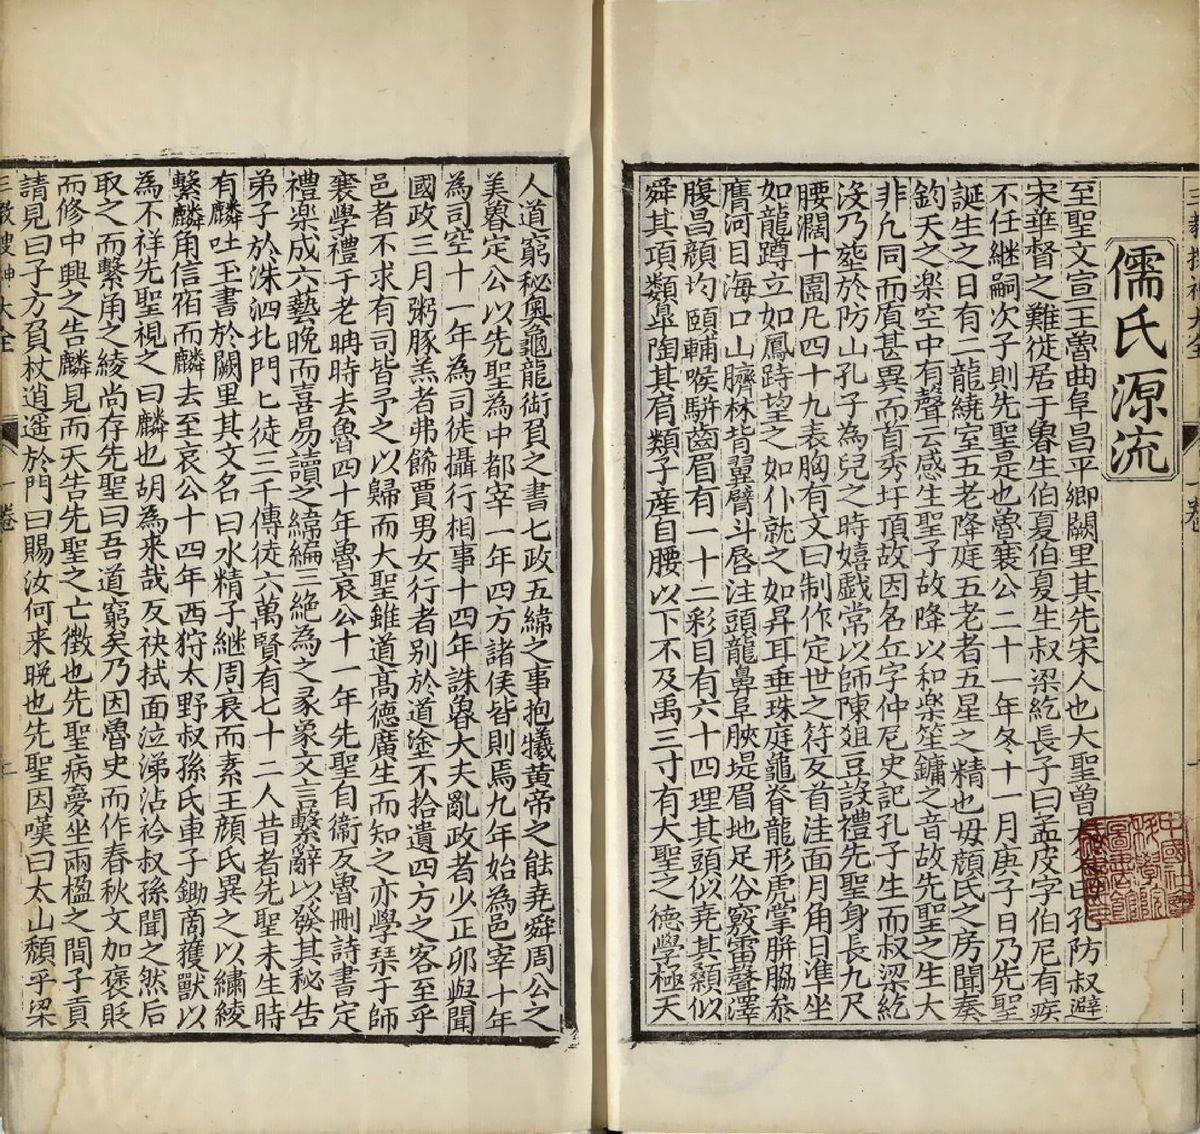 儒氏源流
至聖文宣王魯曲阜昌平鄉闕里其先宋人也大聖曾 曰孔防叔避
宋華督之難徙居于魯生伯夏伯夏生叔梁紇長子曰孟皮字伯尼有疾
不任継嗣次子則先聖是也魯襄公二十一年冬十一月庚子日乃先聖
誕生之日有二龍繞室五老降庭五老者五星之精也毋顔氏之房聞奏
鈞天之楽空中有聲云感生聖子故降以和楽笙鏞之音故先聖之生大
非凢同而盾甚異而首秀圩頂故因名丘字仲尼史記孔子生而叔梁紇
没乃塟於防山孔子為兒之時嬉戯常以師陳爼豆設禮先聖身長九尺
腰濶十圍凢四十九表胸有文曰制作定世之符反首洼面月角日準坐
如龍蹲立如鳳跱望之如仆就之如昇耳垂珠庭龜脊龍形虎掌胼脇叅
膺河目海口山臍林背翼臂斗唇注頭龍鼻阜脥堤眉地足谷竅雷聲澤
腹昌顔均頤輔喉駢齒眉有一十二彩目有六十四理其頭似堯其顙似
舜其項類臯陶其肩類子産自腰以下不及禹三寸有大聖之德學極天
人道窮秘奥龜龍街負之書七政五緯之事抱犧黄帝之能堯舜周公之
美魯定公以先聖為中都宰一年四方諸侯皆則焉九年始為邑宰十年
為司空十一年為司徒攝行相事十四年誅魯大夫亂政者少正卯與聞
國政三月粥豚羔者弗餙賈男女行者别於道塗不拾遺四方之客至乎
邑者不求有司皆予之以歸而大聖雖道髙德廣生而知之亦學琹于師
襄學禮于老聃時去魯四十年魯哀公十一年先聖自衞反魯刪詩書定
禮楽成六藝晚而喜易讀之韋編三絶為之彖象文言繫辭以發其秘告
弟子於洙泗北門匕徒三千傳徒六萬賢有七十二人昔者先聖未生時
有麟吐玉書於闕里其文名曰水精子継周衰而素王顔氏異之以繡綾
繫麟角信宿而麟去至哀公十四年西狩太野叔孫氏車子鋤商獲獸以
為不祥先聖視之曰麟也胡為来哉反袂拭面泣涕沾衿叔孫聞之然后
取之而繫角之綾尚存先聖曰吾道窮矣乃因魯史而作春秋文加褒貶
而修中興之告麟見而天告先聖之亡徴也先聖病夣坐兩楹之間子貢
請見曰子方負杖逍遥於門曰賜汝何来晚也先聖因嘆曰太山頽乎梁
三教搜神大全
一卷